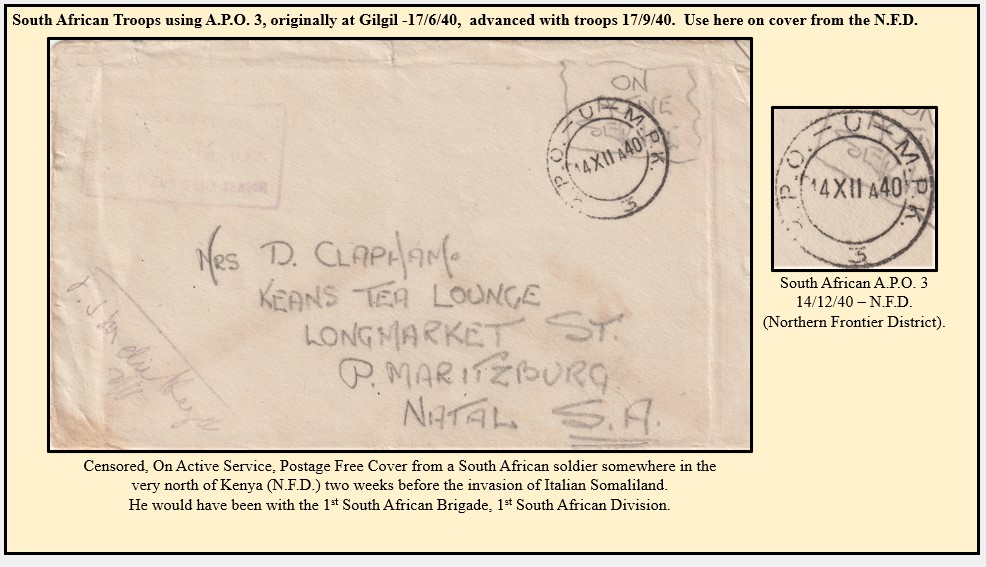 South African Troops using A.P.O. 3, originally at Gilgil -17/6/40, advanced with troops 17/9/40. Use here on cover from the N.F.D.
ON
U — M.P.K.
14 XII A40
3
MRS D. CLAPHAM.
KEANS TEA LOUNGE
LONGMARKET ST.
P. MARITZBURG
NATAL S.A.
U — M.P.K.
14 XII A40
3
South African A.P.O. 3
14/12/40 – N.F.D.
(Northern Frontier District).
Censored, On Active Service, Postage Free Cover from a South African soldier somewhere in the
very north of Kenya (N.F.D.) two weeks before the invasion of Italian Somaliland.
He would have been with the 1st South African Brigade, 1st South African Division.